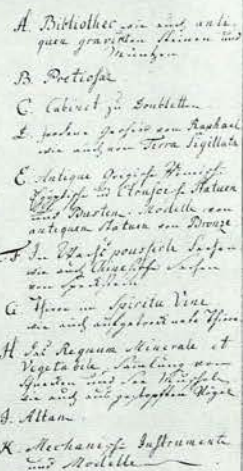 A. Bibliothec wie auch ante-
quen gravirten Steinen und
Müntzen
B. Pretiosa
C. Cabinet zu Doubletten
von Raphael
wie auch von Terra Sigillata
E. Antique
und Statuen
und Busten. Modelle von
antequen Statuen von Bronze
F. In Wachs poussirte Sachen
wie auch Sachen
von Speckstein
G. Thiere in Spiritu Vini
wie auch aufgetrocknete Thiere
H. Das Regnum Minerale et
Vegetabile, Samlung von
und
wie auch ausgestopften Vögel
J. Altan.
K. Mechanische Instrumente
und Modelle